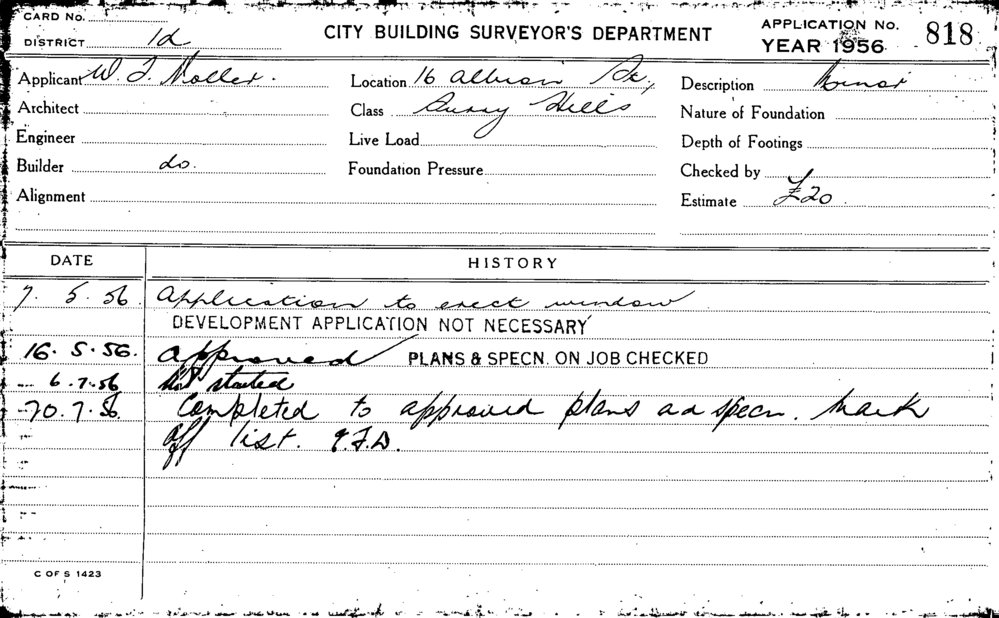 CARD No.
DISTRICT 1d
CITY BUILDING SURVEYOR'S DEPARTMENT
APPLICATION No. 818
YEAR 1956
Applicant W. J. Moller.
Location 16 Albion St,
Description Minor
Architect
Class Surry Hills
Nature of Foundation
Engineer
Live Load
Depth of Footings
Builder do.
Foundation Pressure
Checked by
Alignment
Estimate £20
DATE
HISTORY
7. 5. 56. Application to erect window
DEVELOPMENT APPLICATION NOT NECESSARY
16. 5. 56. Approved PLANS & SPECN. ON JOB CHECKED
6. 7. 56 Not started
7. 56. Completed to approved plans ad specn. Mark
off list.
C OF S 1423